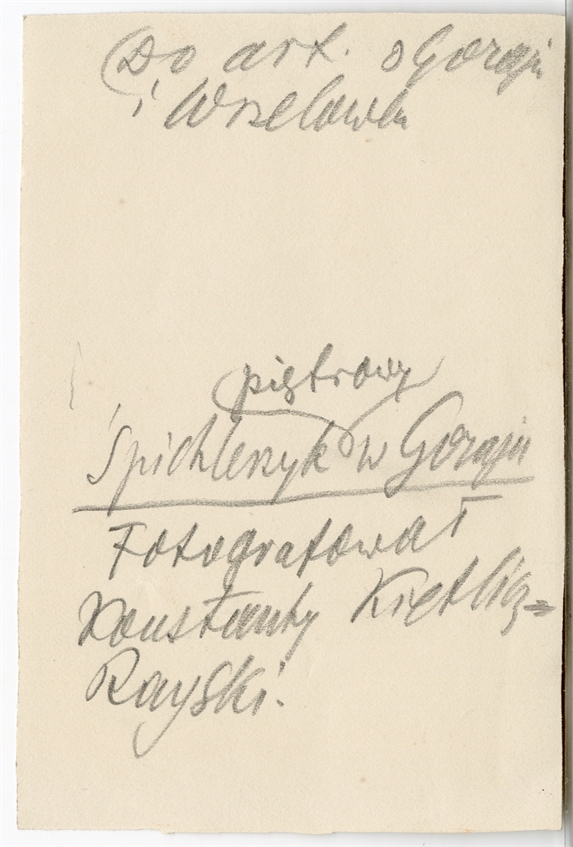 (Do art. o Goraju
i Wszelowu
piętrowy
Śpichlerzyk w Goraju
Fotografował
Konstanty Kietlicz=
Rayski.